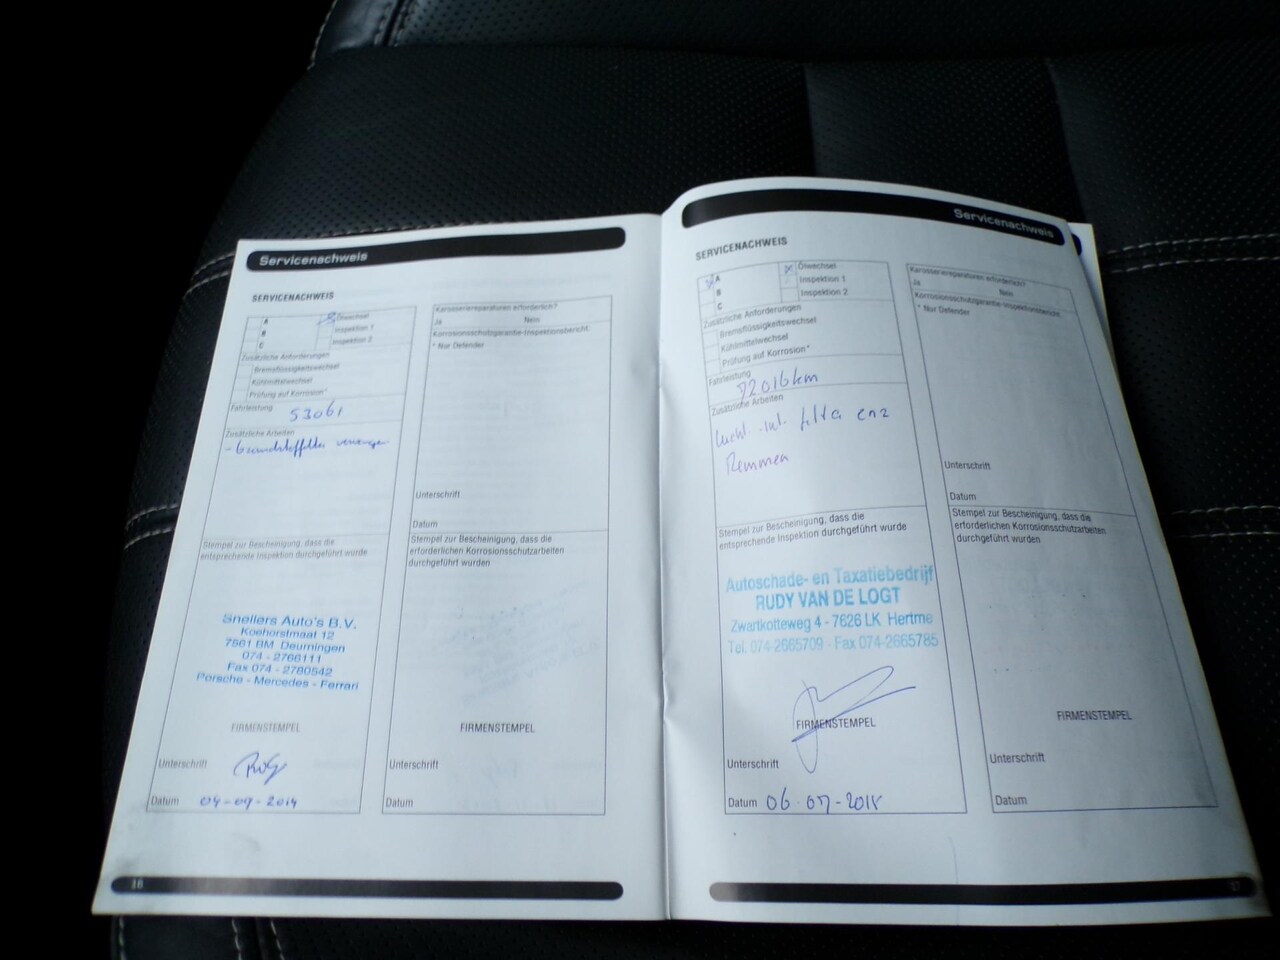 Servicenachweis
SERVICENACHWEIS
A
B
C
Ölwechsel
Inspektion 1
Inspektion 2
Zusätzliche Anforderungen
Bremsflüssigkeitswechsel
Kühlmittelwechsel
Prüfung auf Korrosion*
Fahrleistung
53061
Zusätzliche Arbeiten
Stempel zur Bescheinigung, dass die
entsprechende Inspektion durchgeführt wurde
Snellers Auto's B.V.
Koehorstmaat 12
7561 BM Deurningen
074 - 2766111
Fax 074 - 2780542
Porsche - Mercedes - Ferrari
FIRMENSTEMPEL
Unterschrift
Datum 04-09-2014
Karosseriereparaturen erforderlich?
Ja Nein
Korrosionsschutzgarantie-Inspektionsbericht
* Nur Defender
Unterschrift
Datum
Stempel zur Bescheinigung, dass die
erforderlichen Korrosionsschutzarbeiten
durchgeführt wurden
FIRMENSTEMPEL
Unterschrift
Datum
16
Servicenachweis
SERVICENACHWEIS
A
B
C
Ölwechsel
Inspektion 1
Inspektion 2
Zusätzliche Anforderungen
Bremsflüssigkeitswechsel
Kühlmittelwechsel
Prüfung auf Korrosion*
Fahrleistung
72016 km
Zusätzliche Arbeiten
enz
Remmen
Stempel zur Bescheinigung, dass die
entsprechende Inspektion durchgeführt wurde
Autoschade- en Taxatiebedrijf
RUDY VAN DE LOGT
Zwartkotteweg 4 - 7626 LK Hertme
Tel. 074-2665709 - Fax 074-2665785
FIRMENSTEMPEL
Unterschrift
Datum 06-07-2018
Karosseriereparaturen erforderlich?
Ja Nein
Korrosionsschutzgarantie-Inspektionsbericht
* Nur Defender
Unterschrift
Datum
Stempel zur Bescheinigung, dass die
erforderlichen Korrosionsschutzarbeiten
durchgeführt wurden
FIRMENSTEMPEL
Unterschrift
Datum
17